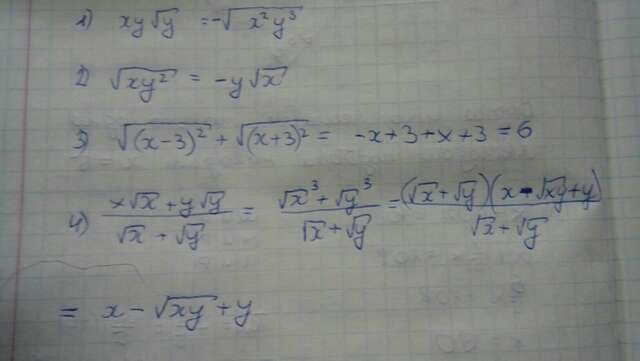 1) xy√y = -√(x²y³)
2) √(xy²) = -y√x
3) √((x-3)²) + √((x+3)²) = -x+3+x+3 = 6
4) (x√x + y√y)/(√x + √y) = (√x³ + √y³)/(√x + √y) = ((√x + √y)(x - √xy + y))/(√x + √y)
= x - √xy + y